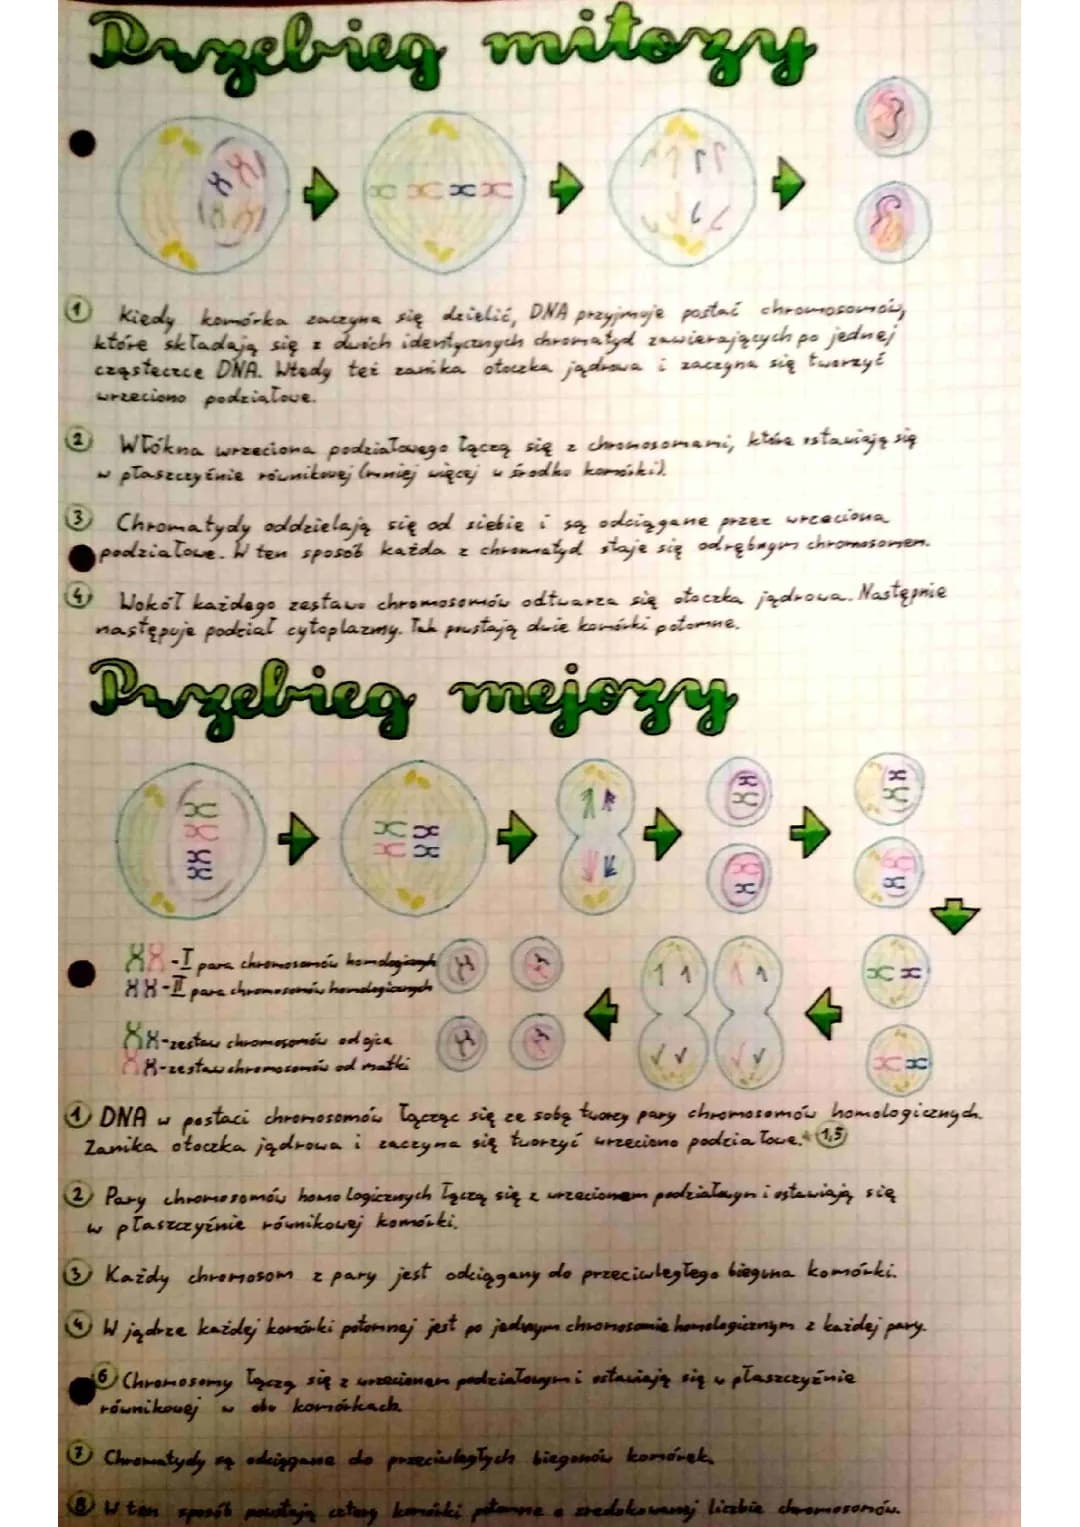 Przebieg mitozy
① Kiedy komórka zaczyna się dzielić, DNA przyjmuje postać chromosomów,
które składają się z dwóch identycznych chromatyd zawierających po jednej
cząsteczce DNA. Wtedy też zanika otoczka jądrowa i zaczyna się tworzyć
wrzeciono podziałowe.
② Włókna wrzeciona podziałowego łączą się z chromosomami, które ustawiają się
w płaszczyźnie równikowej (mniej więcej w środku komórki).
③ Chromatydy oddzielają się od siebie i są odciągane przez wrzeciona
podziałowe. W ten sposób każda z chromatyd staje się odrębnym chromosomem.
④ Wokół każdego zestawu chromosomów odtwarza się otoczka jądrowa. Następnie
następuje podział cytoplazmy. Tak powstają dwie komórki potomne.
Przebieg mejozy
- I para chromosomów homologicznych
- II para chromosomów homologicznych
- zestaw chromosomów od ojca
- zestaw chromosomów od matki
① DNA w postaci chromosomów łącząc się ze sobą tworzy pary chromosomów homologicznych.
Zanika otoczka jądrowa i zaczyna się tworzyć wrzeciono podziałowe. * 1,5
② Pary chromosomów homologicznych łączą się z wrzecionem podziałowym i ustawiają się
w płaszczyźnie równikowej komórki.
③ Każdy chromosom z pary jest odciągany do przeciwległego bieguna komórki.
④ W jądrze każdej komórki potomnej jest po jednym chromosomie homologicznym z każdej pary.
⑥ Chromosomy łączą się z wrzecionem podziałowym i ustawiają się w płaszczyźnie
równikowej w obu komórkach.
⑦ Chromatydy są odciągane do przeciwległych biegunów komórek.
⑧ W ten sposób powstają cztery komórki potomne o zredukowanej liczbie chromosomów.